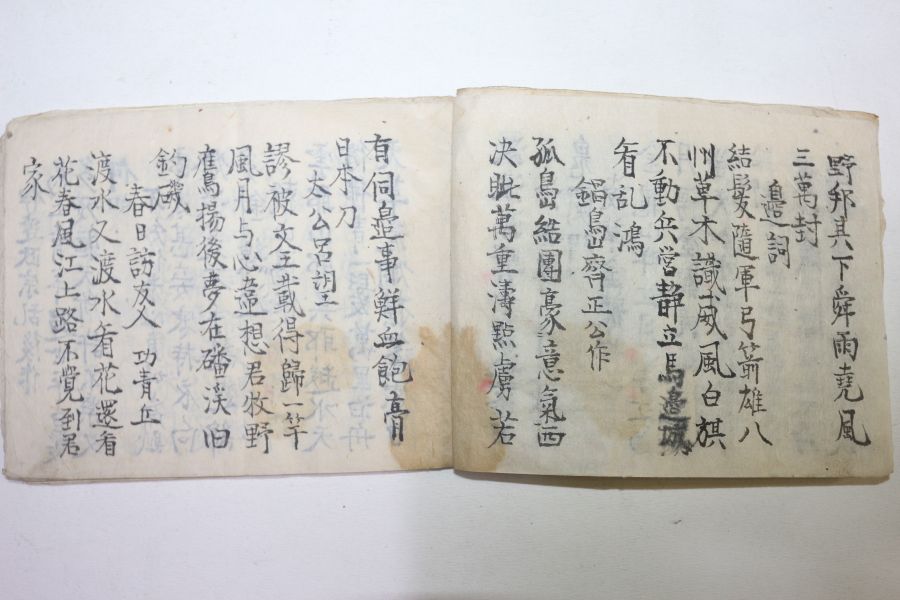 野邦其下舜雨堯風
三萬封
邉詞
結髮隨軍弓箭雄八
州草木識威風白旗
不動兵営静立馬邉城
看乱鴻
鍋島齊正公作
孤島結團豪意氣西
决眦萬重濤點虜若
有伺邉事鮮血飽膏
日本刀
太公呂望
謬被文王載得歸一竿
風月与心違想君牧野
鷹揚後夢在磻溪旧
釣磯
春日訪友人 功青丘
渡水又渡水看花還看
花春風江上路不覚到君
家